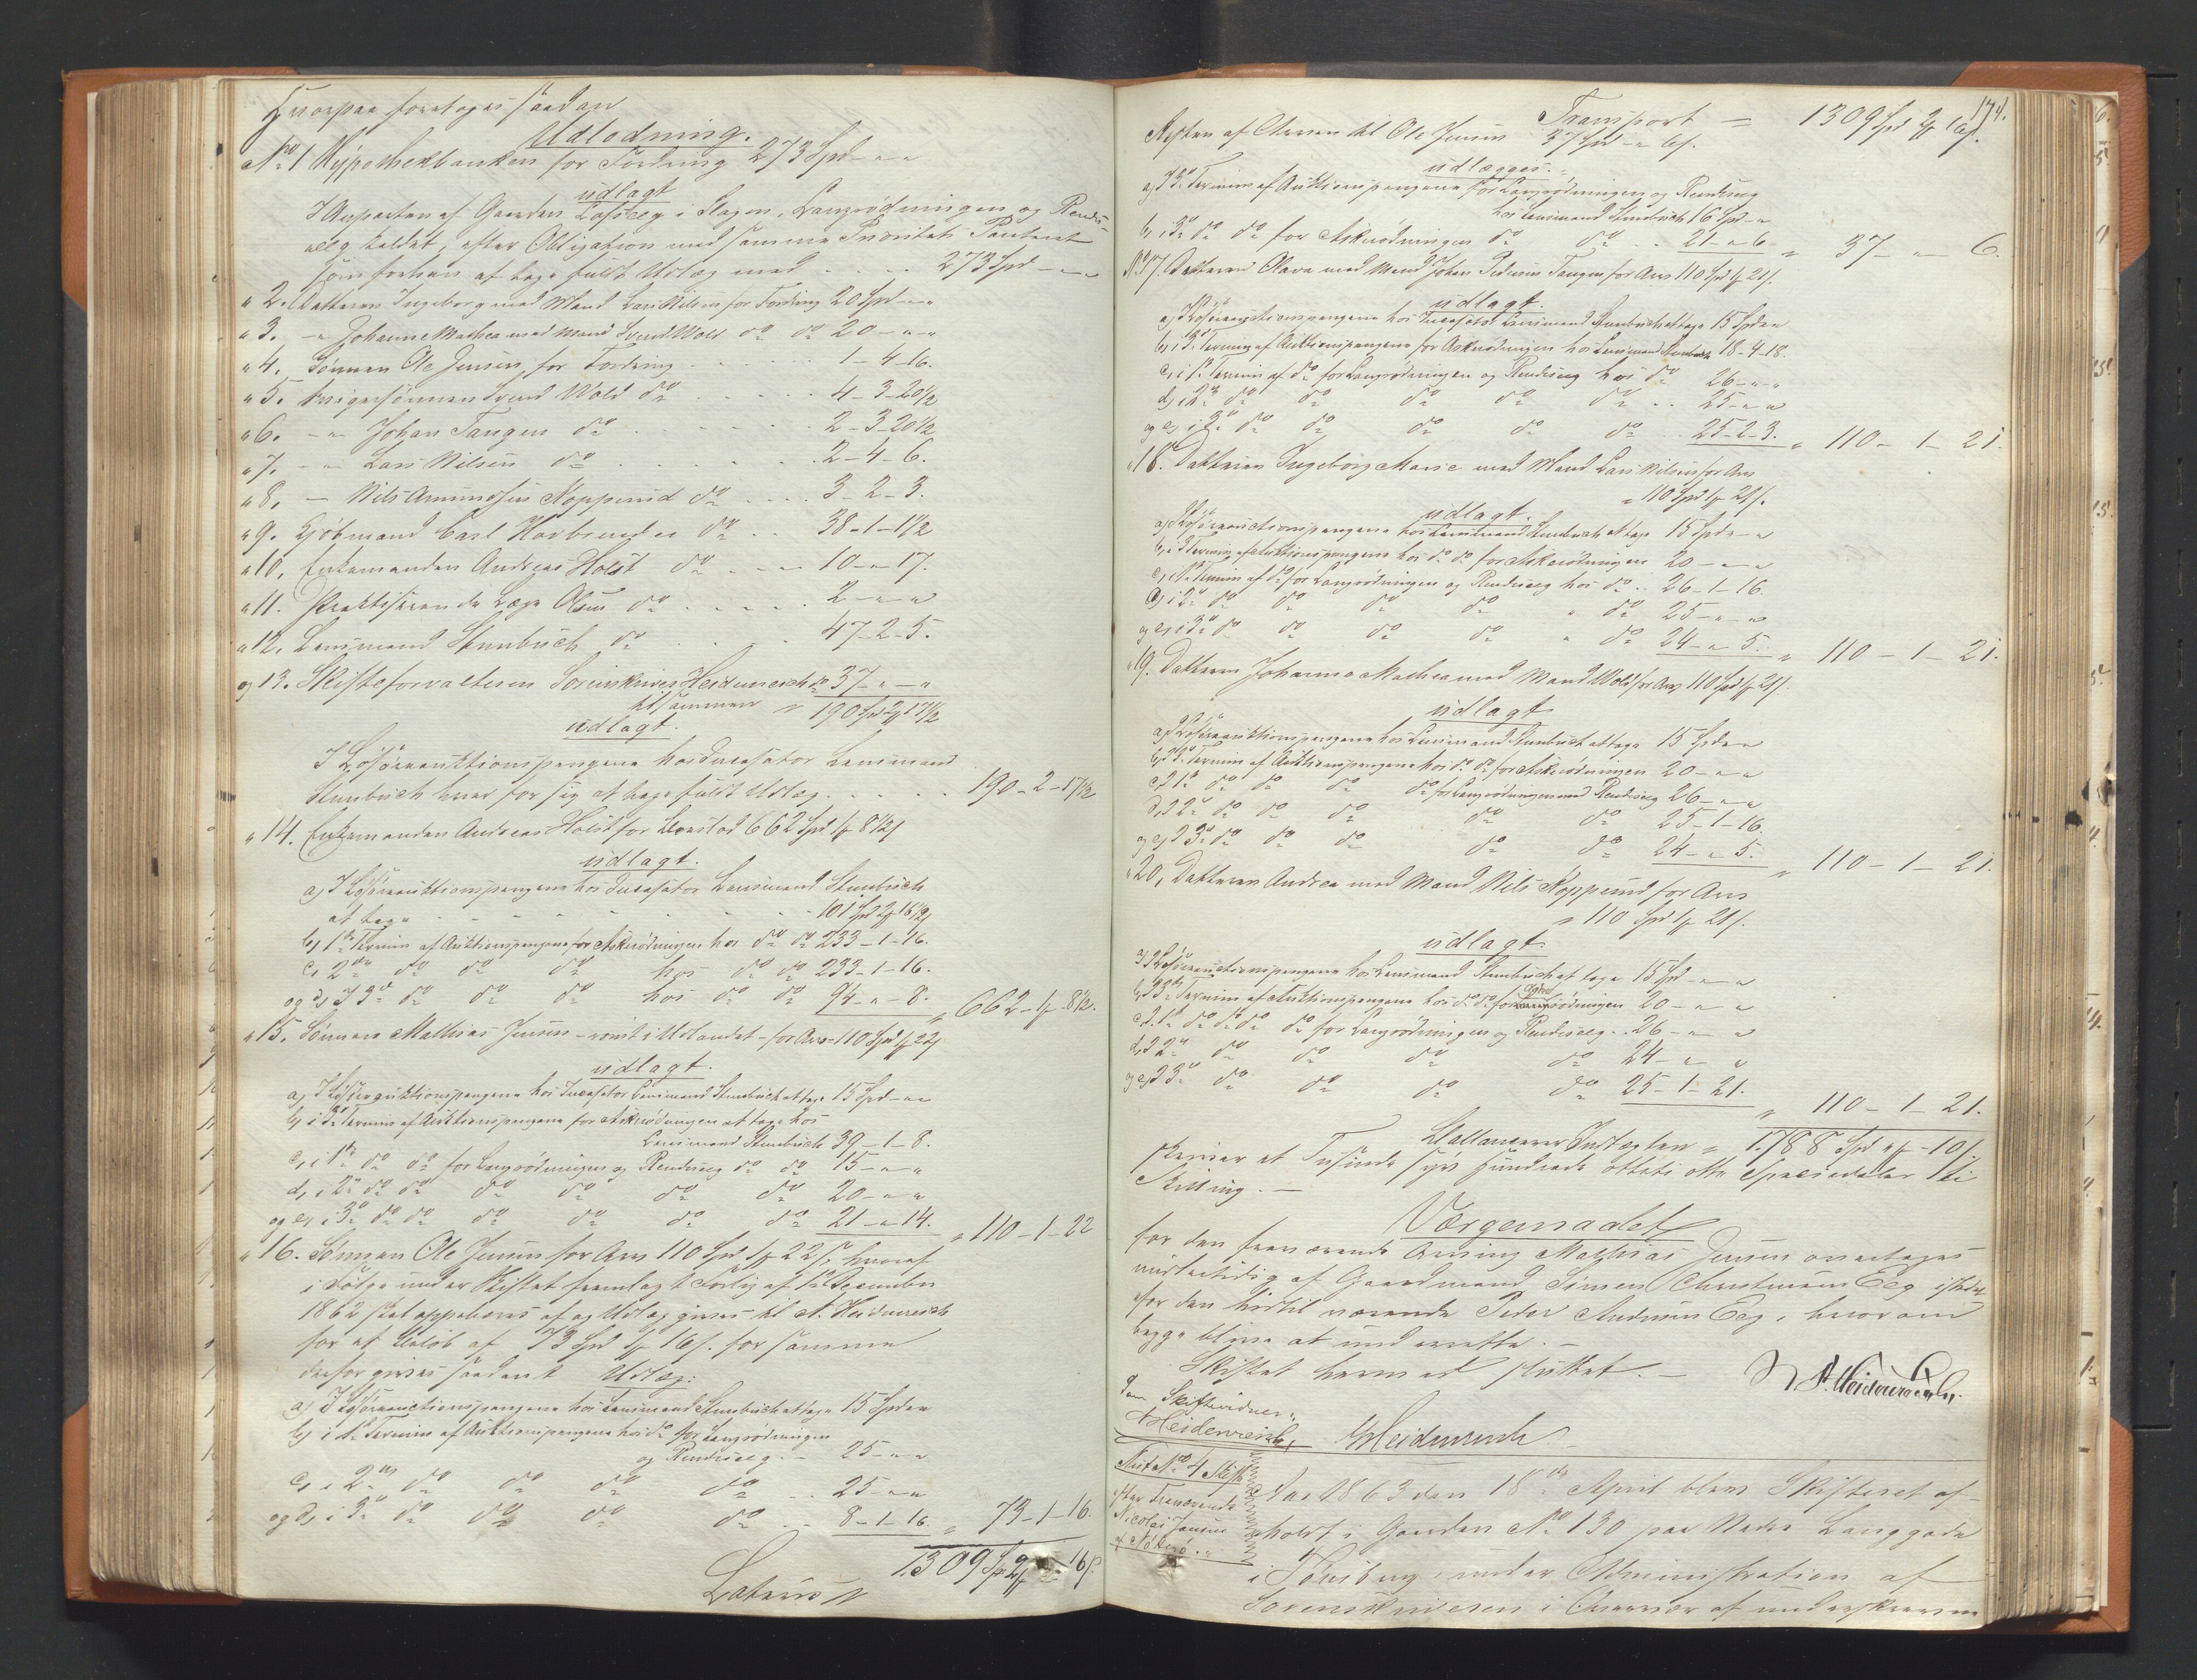 Hvorpaa foretoges saadan
Udlodning.
No 1 Hypothekbanken for Fordring 273 Spd - " "
udlagt
I Anparten af Gaarden Løfseeg i Slagen, Langrødningen og Rends-
eeg kaldet, efter Obligation med samme Prioritet i Pantet
som forhen at tage fuldt Udlæg med . . . 273 Spd - " "
" 2. Datteren Ingeborg med Mand Lars Nilsen for Fordring 20 Spd - " "
" 3. - " Johanne Mathea med Mand Svend Wold do do 20 - " - "
" 4. Sønnen Ole Jensen, for Fordring . . . 1 - 4 - 16.
" 5. Svigersønnen Svend Wold do . . . 4 - 3 - 20 1/2
" 6. - " - Johan Tangen do . . . 2 - 3 - 20 1/2
" 7. - " - Lars Nilsen do . . . 2 - 4 - 6.
" 8. - Nils Amundsen Kopperud do . . . 3 - 2 - 3.
" 9. Kjøbmand Carl do . . 38 - 1 - 1 1/2
" 10. Enkemanden Andreas Holst do . . . 10 - " - 17.
" 11. Praktiserende Læge Olsen do . . . 2 - " - "
" 12. Lensmand Stenbuch do . . . 47 - 2 - 5.
og 13. Skifteforvalteren Sorenskriver Heidenreich do 37 - " - "
tilsammen = 190 Spd 2 # 17 1/2
udlagt.
I Løsøreauktionspengene hos Incassator Lensmand
Stenbuch hver for sig at tage fuldt Udlæg . . . 190 - 2 - 17 1/2
" 14. Enkemanden Andreas Holst for Boeslod 662 Spd 1 # 8 1/2 s
udlagt.
a, I Løsøreauktionspengene hos Incassator Lensmand Stenbuch
at tage . . . 101 Spd 2 # 16 1/2 s
b, 1ste Termin af Auktionspengene for Askerødningen hos do do 233 - 1 - 16.
c, 2den do do do hos do do 233 - 1 - 16.
og d, I 3die do do do hos do do 94 - " - 8. = 662 - 1 - 8 1/2.
" 15. Sønnen Mathias Jensen - reist i Udlandet - for Arv = 110 Spd 1 # 22 s
udlagt.
a, I Løsøreauktionspengene hos Incassator Lensmand Stenbuch at tage 15 Spd - " "
b, i 3die Termin af Auktionspengene for Askerødningen at tage hos
Lensmand Stenbuch 39 - 1 - 8.
c, i 1ste do do for Langrødningen og Rendseeg do do 15 - " - "
d, i 2den do do do do do do 20 - " - "
og e, i 3die do do do do do do 21 - " - 14. = 110 - 1 - 22
" 16. Sønnen Ole Jensen for Arv 110 Spd 1 # 22 s, hvoraf
i Følge under Skiftet fremlagt af 12te December
1862 skal oppebæres af og Udlæg gives til A. Heidenreich
for et Beløb af 73 Spd 1 # 16 s. for samme
derfor gives saadant Udlæg:
a, I Løsøreauctionspengene hos Lensmand Stenbuch at tage 15 Spd " "
b, i 1ste Termin af Auktionspengene hos do for Langrødningen
og Rendseeg . . 25 - " - "
c, i 2den do do do do . . 25 - " "
og d, i 3die do do do do . . 8 - 1 - 16. = 73 - 1 - 16.
1309 Spd 2 # 16 s.
Lateris =
174.
Transport = 1309 Spd 2 # 16 s.
Resten af Arven til Ole Jensen 37 Spd - " 6 s.
udlægges.
a, I 3die Termin af Auktionspengene for Langrødningen og Rendseeg
hos Lensmand Stenbuch 16 Spd - "
b, i 3die do do for Askerødningen do do . . 21 - " 6 = 37 - " - 6.
No 17. Datteren Olava med Mand Johan Pedersen Tangen for Arv 110 Spd 1 # 21 s.
udlagt.
a, I Løsøreauctionspengene hos Incassator Lensmand Stenbuch at tage 15 Spd " "
b, i 3die Termin af Auktionspengene for Askerødningen hos Lensmand Stenbuch 18 - 4 - 18.
c, i 1ste Termin af do for Langrødningen og Rendseeg hos do 26 - " "
d, i 2den do do do do do . . 25 - " "
og e, i 3die do do do do do . . 25 - 2 - 3. = 110 - 1 - 21.
" 18. Datteren Ingeborg Marie med Mand Lars Nilsen for Arv
= 110 Spd 1 # 21 s.
udlagt.
a, I Løsøreauctionspengene hos Lensmand Stenbuch at tage 15 Spd - " - "
b, i 3 Termin af Auktionspengene hos do do for Askerødningen 20 - " - "
c, i 1ste Termin af do for Langrødningen og Rendseeg hos do . . 26 - 1 - 16.
d, i 2den do do do do " do 25 - " - "
og e, i 3die do do do do " do 24 - " 5. = 110 - 1 - 21.
" 19. Datteren Johanne Mathea med Mand Wold for Arv 110 Spd 1 # 21 s.
udlagt
a, I Løsøreauktionspengene hos Lensmand Stenbuch at tage 15 Spd " "
b, I 3die Termin af Auktionspengene hos do do for Askerødningen 20 - " "
c, I 1ste do do do do for Langrødningen med Rendseeg 26 - " "
d, I 2den do do do do do 25 - 1 - 16.
og e, I 3die do do do do do 24 - " 5. = 110 - 1 - 21.
" 20, Datteren Andrea med Mand Nils Kopperud for Arv
= 110 Spd 1 # 21 s.
udlagt.
a, I Løsøreauctionspengene hos Lensmand Stenbuch at tage 15 Spd - " "
b, I 3die Termin af Auktionspengene hos do do for rødningen 20 - " "
c, I 1ste do do do do for Langrødningen og Rendseeg . . 26 - " "
d, I 2den do do do 24 - " "
og e, I 3die do do do do 25 - 1 - 21. = 110 - 1 - 21.
Ballancerer Indtægten = 1788 Spd " # - 10 s
skriver et Tusinde syv Hundrede otteti otte Speciedaler ti
Skilling. -
Værgemaalet
for den fraværende Arving Mathias Jensen overtages
midlertidig af Gaardmand Simen Christensen Eeg istedet-
for den hidtil værende Peder Andersen Eeg, hvorom
begge blive at underrette. -
Skiftet hermed sluttet. - N. A. Heidenreich.
Som Skiftevidner:
Heidenreich, Heidenreich
No 4 Skifte
efter Fraværende
Nicolai Jensen
af Nøtterø. -
Aar 1863 den 18de April blev Skifteret af-
holdt i Gaarden No 130 paa Nedre Langgade
i Tønsberg under Administration af
Sorenskriveren i Overvær af underskrevne